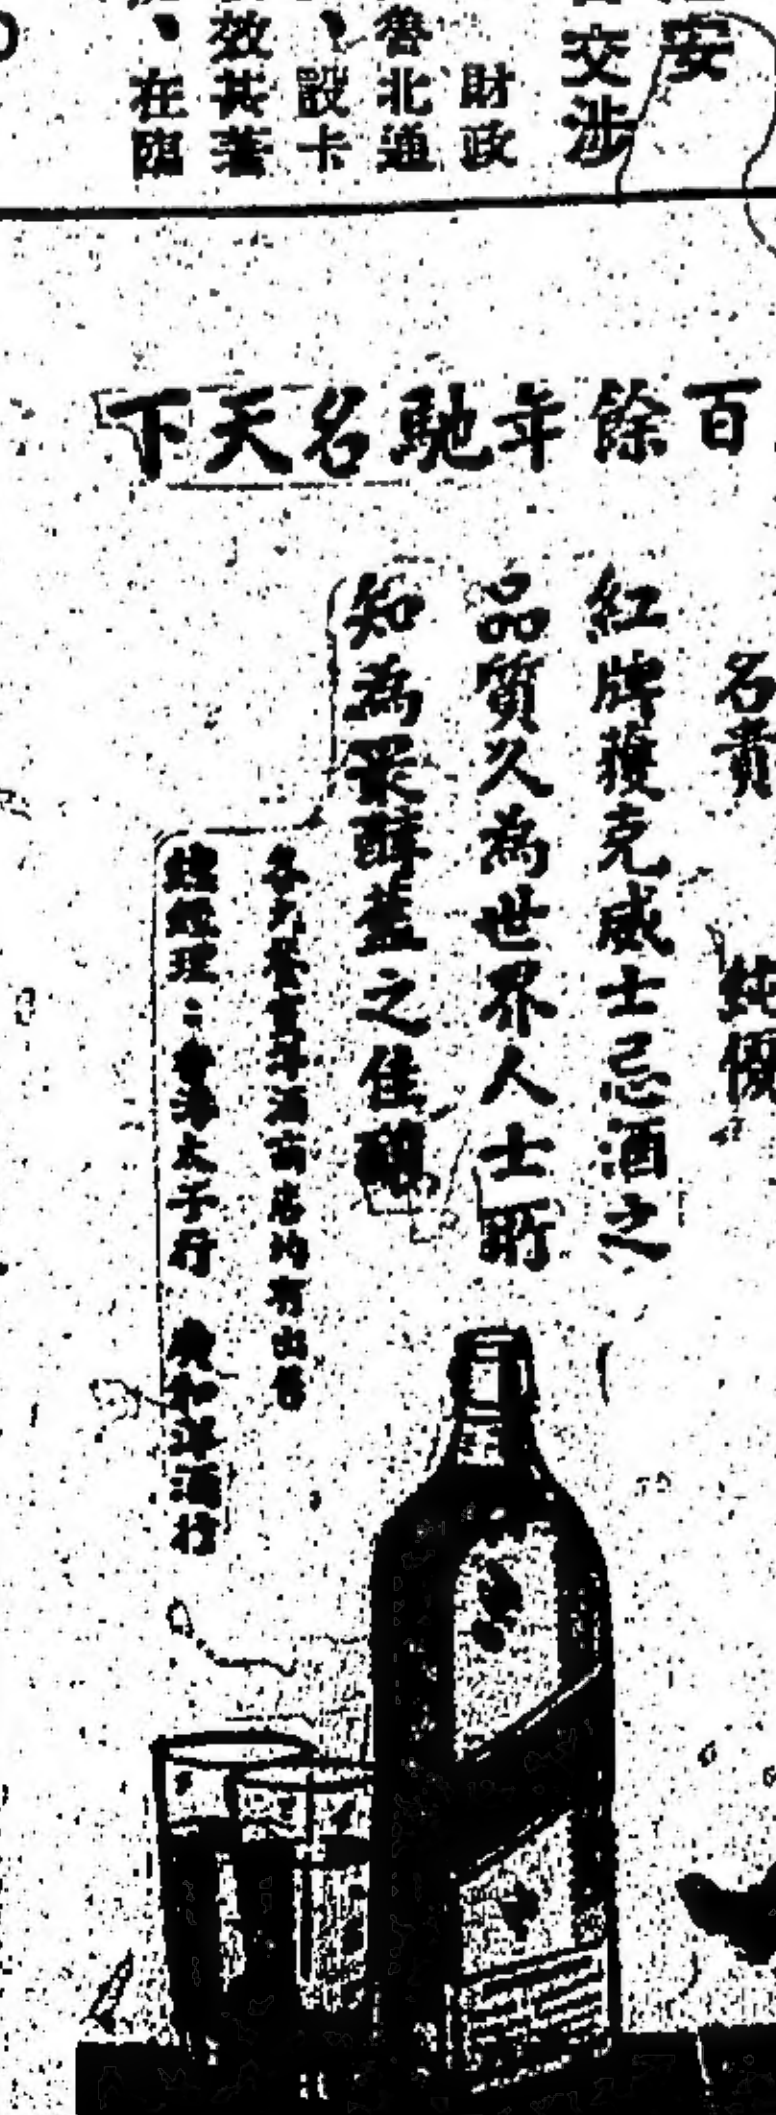 安
交涉
財政
魯北通
、設卡
效甚著
、在臨
百餘年馳名天下
名貴 純
紅牌獲克威士忌酒之
品質久為世界人士所
知為眾醇之佳釀
各大餐室洋酒商店均有出售
總經理：香港太子行 廣和洋酒行